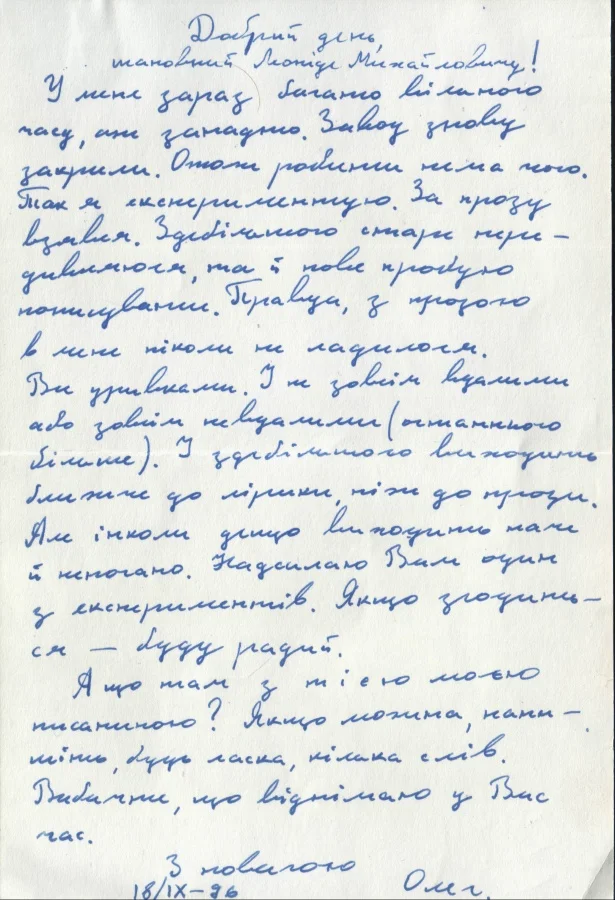 Добрий день,
шановний Леоніде Михайловичу!
У мене зараз багато вільного
часу, аж занадто. Завод знову
закрили. Отож робити нема чого.
Так я експериментую. За прозу
взявся. Здебільшого старе пере-
дивляюся, та й нове пробую
понаписувати. Правда, з прозою
в мене ніколи не ладилося.
Все уривками. І ж зовсім вдалими
або зовсім невдалими (останнього
більше). І здебільшого виходить
ближче до лірики, ніж до прози.
Але інколи дещо виходить наче
й непогано. Надсилаю Вам один
з експериментів. Якщо згодить-
ся — буду радий.
А що там з тією моєю
писаниною? Якщо можна, напи-
шіть, будь ласка, кілька слів.
Вибачте, що віднімаю у Вас
час.
З повагою
18/IX-96 Олег.